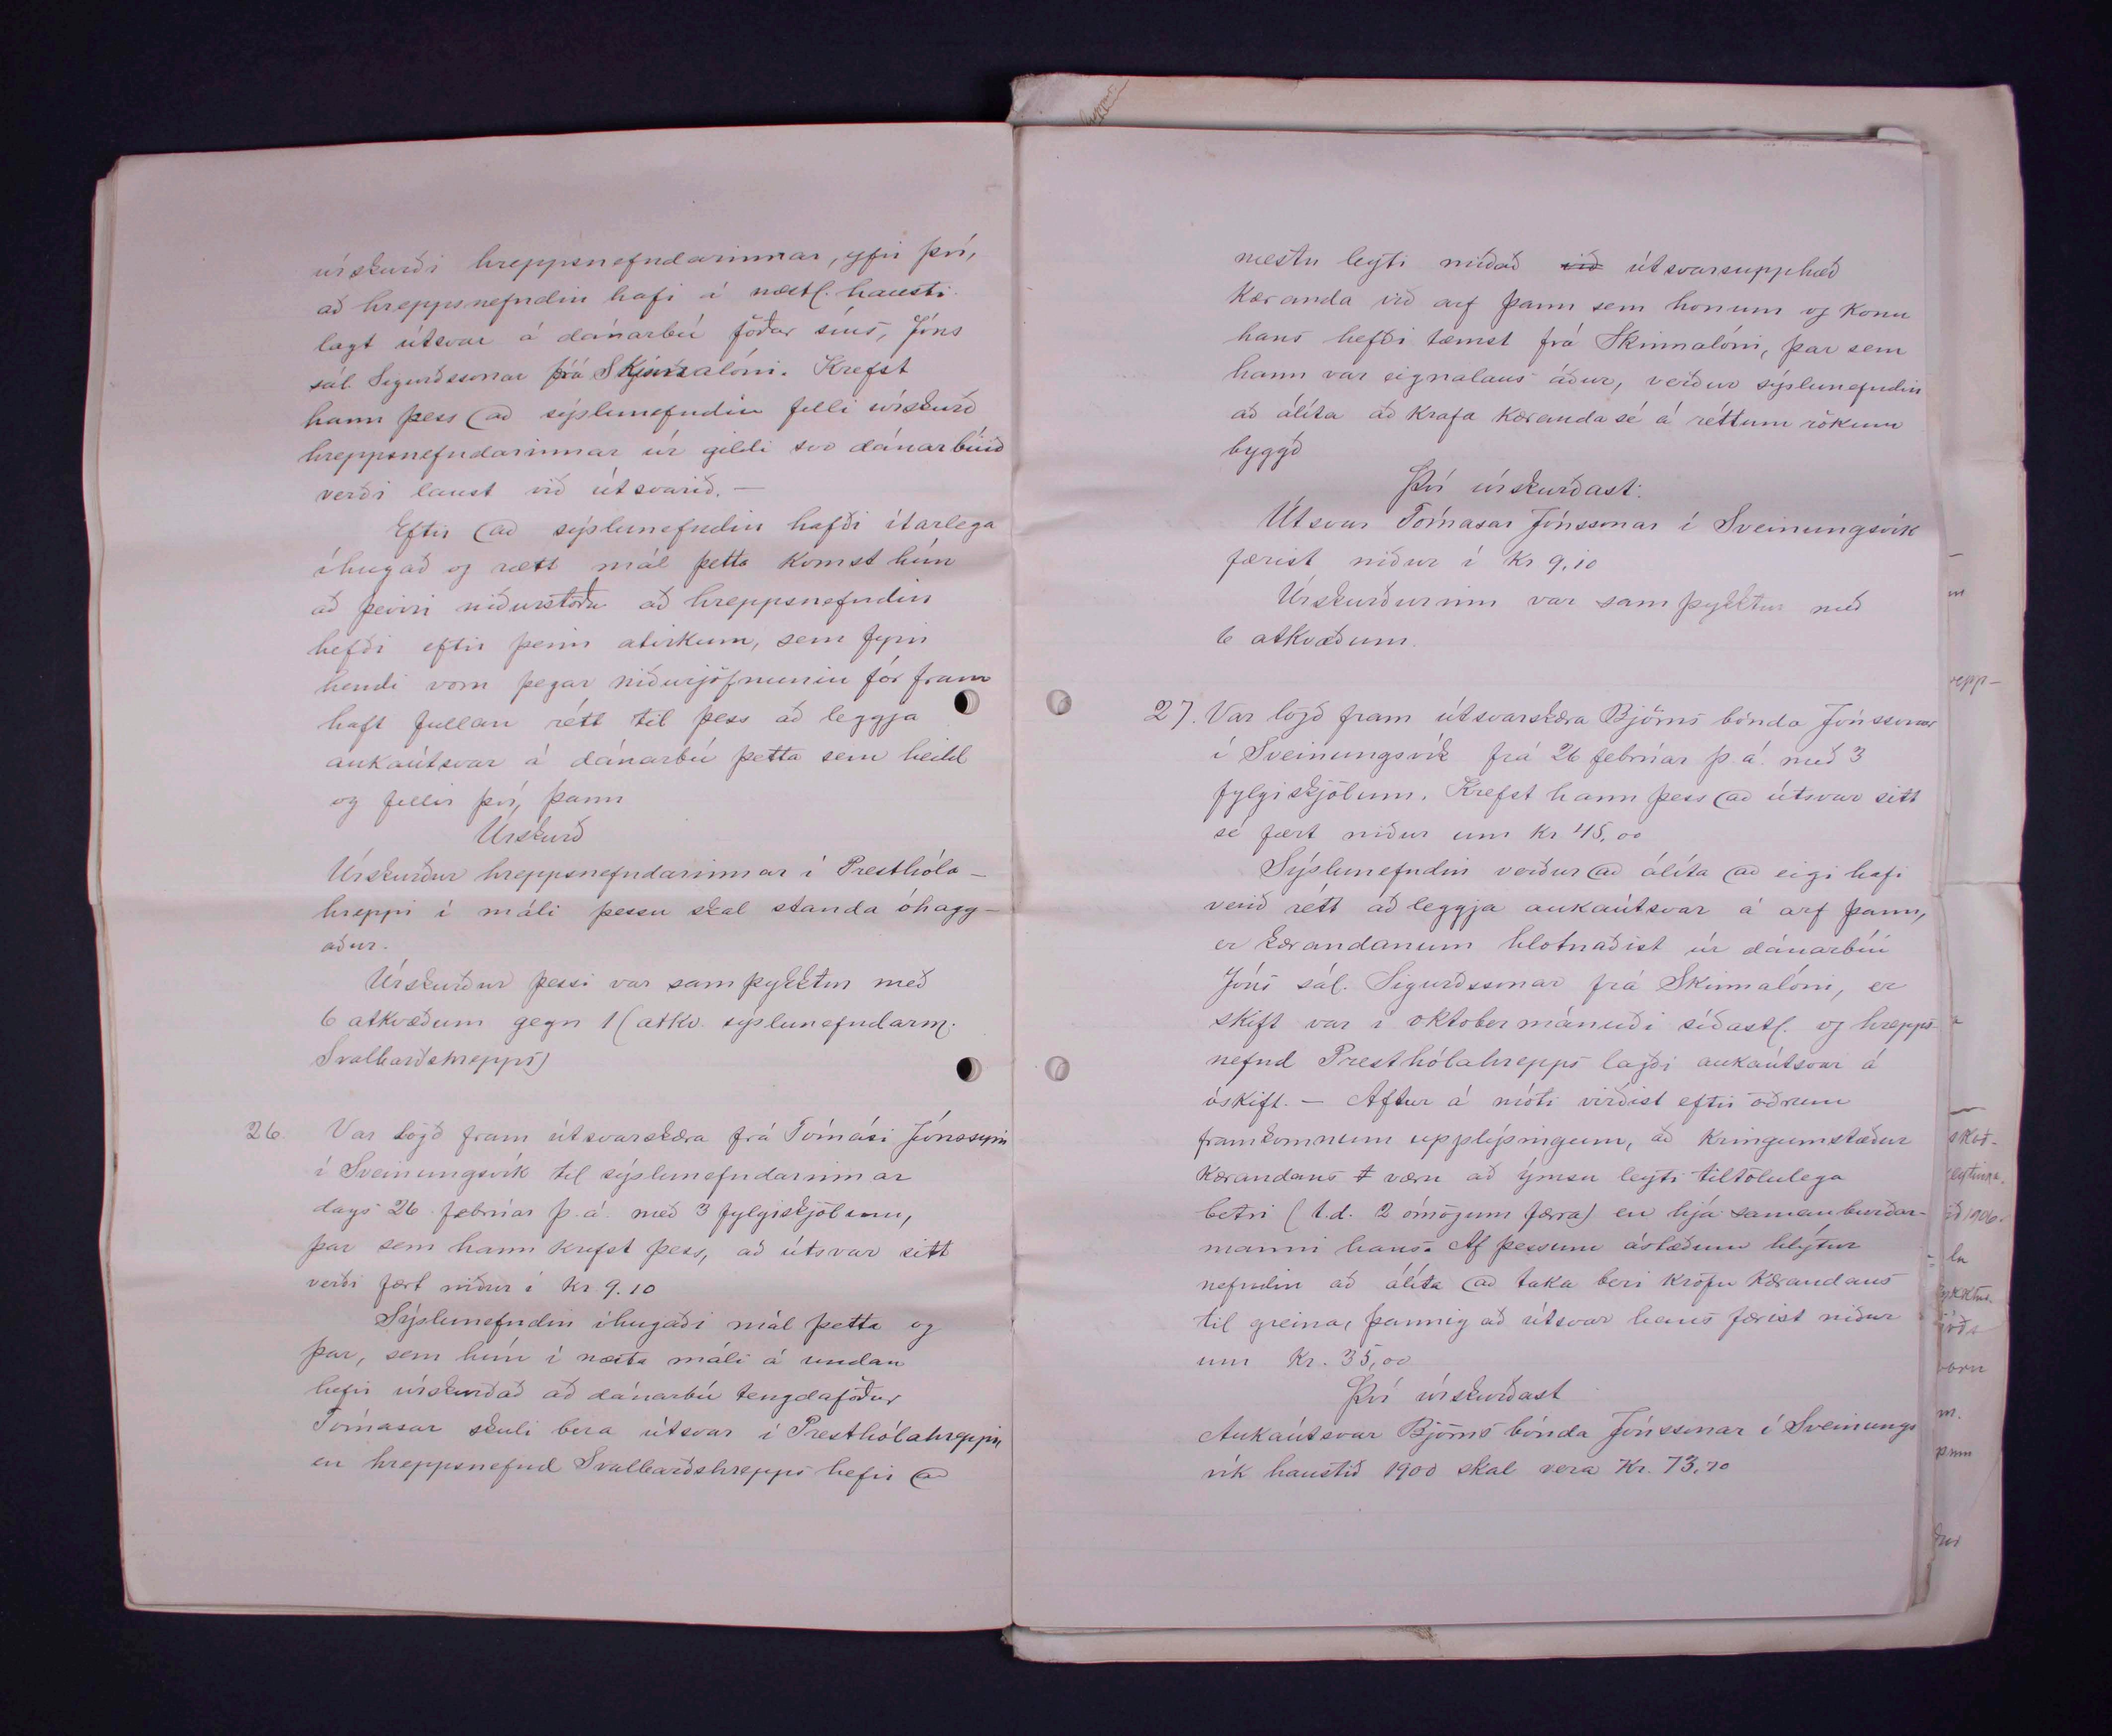 úrskurði hreppsnefndarinnar, yfir því,
að hreppsnefndin hafi á næstl. hausti
lagt útsvar á dánarbú föður síns, Jóns
sál. Sigurðssonar frá Skinnalóni. Krefst
hann þess að sýslunefndin felli úrskurð
hreppsnefndarinnar úr gildi svo dánarbúið
verði laust við útsvarið. —
Eftir að sýslunefndin hafði ítarlega
íhugað og rætt mál þetta komst hún
að þeirri niðurstöðu að hreppsnefndin
hefði eftir þeim atvikum, sem fyrir
hendi voru þegar niðurjöfnunin fór fram
haft fullan rétt til þess að leggja
aukaútsvar á dánarbú þetta sem heild
og fellir því, þann
Úrskurð
Úrskurður hreppsnefndarinnar í Presthóla-
hreppi í máli þessu skal standa óhagg-
aður.
Úrskurður þessi var samþykktur með
6 atkvæðum gegn 1 (atkv. sýslunefndarm.
Svalbarðshrepps)
26. Var lögð fram útsvarskæra frá Tómási Jónssyni
í Sveinungsvík til sýslunefndarinnar
dags 26 febrúar þ. á. með 3 fylgiskjölum,
þar sem hann krefst þess, að útsvar sitt
verði fært niður í kr 9.10
Sýslunefndin íhugaði mál þetta og
þar, sem hún í næsta máli á undan
hefir úrskurðað að dánarbú tengdaföður
Tómasar skuli bera útsvar í Presthólahreppi,
en hreppsnefnd Svalbarðshrepps hefir að
mestu leyti miðað við útsvarsupphæð
kæranda við arf þann sem honum og konu
hans hefði tæmst frá Skinnalóni, þar sem
hann var eignalaus áður, verður sýslunefndin
að álíta að krafa kæranda sé á réttum rökum
byggð
Því úrskurðast:
Útsvar Tómasar Jónssonar í Sveinungsvík
færist niður í kr 9.10
Úrskurðurinn var samþykktur með
6 atkvæðum.
27. Var lögð fram útsvarskæra Björns bónda Jónssonar
í Sveinungsvík frá 26 febrúar þ. á. með 3
fylgiskjölum. Krefst hann þess að útsvar sitt
sé fært niður um kr 45,00
Sýslunefndin verður að álíta að eigi hafi
verið rétt að leggja aukaútsvar á arf þann,
er kærandanum hlotnaðist úr dánarbúi
Jóns sál. Sigurðssonar frá Skinnalóni, er
skift var í októbermánuði síðastl. og hrepps-
nefnd Presthólahrepps lagði aukaútsvar á
óskift. — Aftur á móti virðist eftir öðrum
framkomnum upplýsingum, að kringumstæður
kærandans væru að ýmsu leyti tiltölulega
betri (t.d. 2 ómögum færra) en hjá samanburðar-
manni hans. Af þessum ástæðum hlýtur
nefndin að álíta að taka beri kröfu kærandans
til greina, þannig að útsvar hans færist niður
um Kr. 35,00
Því úrskurðast
Aukaútsvar Björns bónda Jónssonar í Sveinungs
vík haustið 1900 skal vera Kr. 73,70